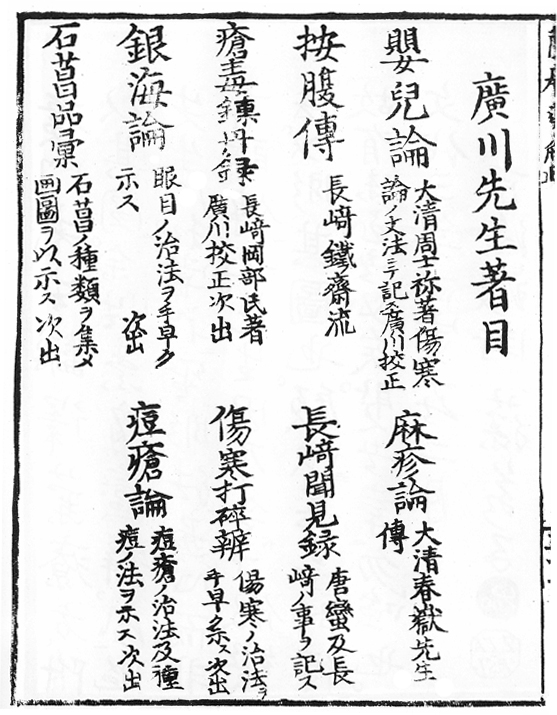 廣川先生著目
嬰兒論
大清周士祢著傷寒
論ノ文法ニテ記ス廣川挍正
麻疹論
大清春嶽先生
傳
按腹傳
長﨑鐵齋流
長﨑聞見録
唐蠻及長
﨑ノ事ヲ記ス
瘡毒鎮丹録
長﨑岡部氏著
廣川挍正次出
傷寒打碎辨
傷寒ノ治法ヲ
手早ク示ス次出
銀海論
眼目ノ治法ヲ手早ク
示ス 次出
痘瘡論
痘瘡ノ治法及種
痘ノ法ヲ示ス次出
石菖品彙
石菖ノ種類ヲ集メ
画圖ヲ以示ス次出